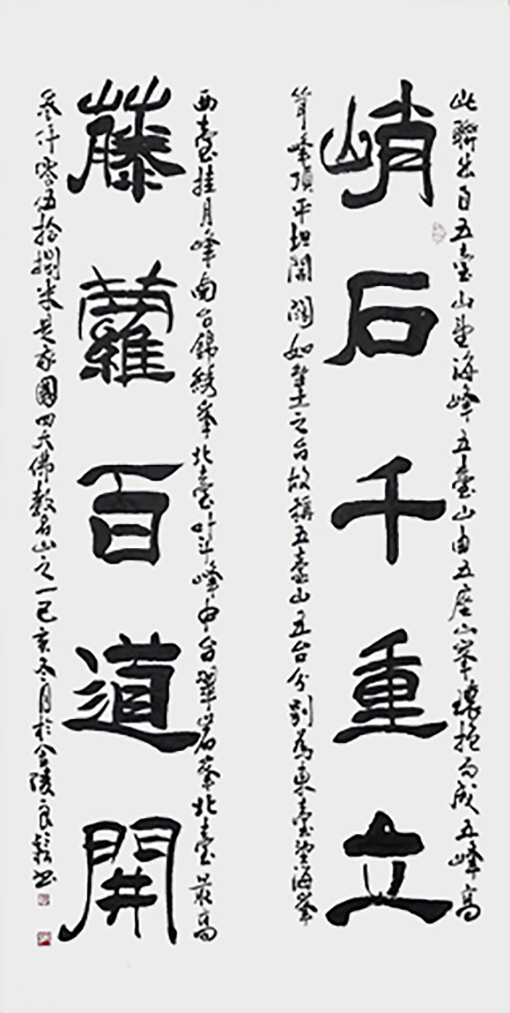 此聯出自五臺山望海峰五臺山由五座山峯環抱而成五峰高
峭石千重立
耸峰頂平坦開闊如壘土之台故稱五臺山五台分別為東臺望海峯
西臺挂月峰南台錦綉峯北臺叶斗峰中台翠岩峯北臺最高
藤蘿百道開
叁仟零伍拾捌米是我國四大佛教名山之一己亥冬月於金陵良書